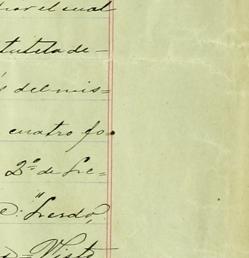 por el cual
tutela de-
s del mis=
cuatro fo
2ª de Le=
"Lerdo",
= Visto